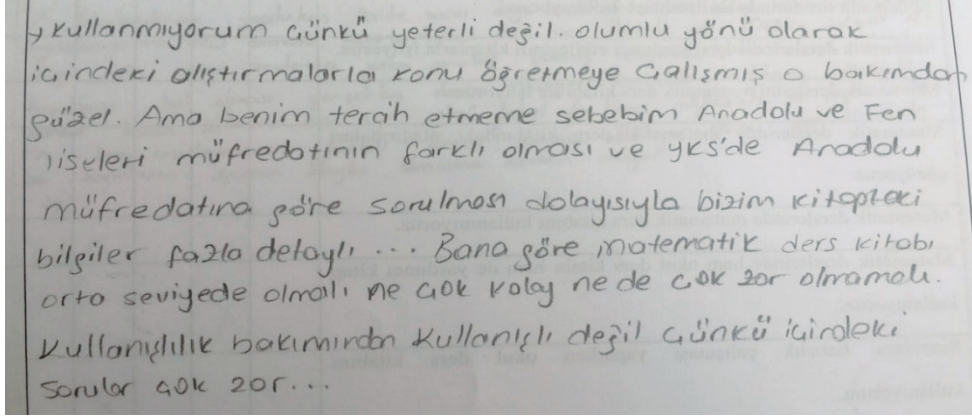 → Kullanmıyorum Çünkü yeterli değil. olumlu yönü olarak
içindeki alıştırmalarla konu öğretmeye Çalışmış o bakımdan
güzel. Ama benim tercih etmeme sebebim Anadolu ve Fen
liseleri müfredatının farklı olması ve yks'de Anadolu
müfredatına göre sorulması dolayısıyla bizim kitaptaki
bilgiler fazla detaylı ... Bana göre matematik ders kitabı
orta seviyede olmalı ne çok kolay ne de çok zor olmamalı.
Kullanışlılık bakımından Kullanışlı değil Çünkü içindeki
sorular çok zor...